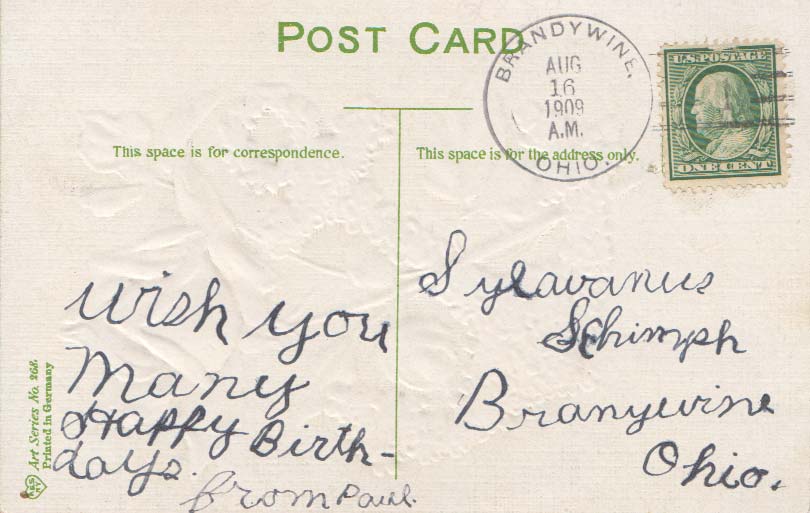 POST CARD
BRANDYWINE,
AUG
16
1909
A.M.
OHIO.
U.S. POSTAGE
ONE CENT
This space is for correspondence.
This space is for the address only.
wish you
Many
Happy Birth-
days.
from Paul.
Sylavanus
Schimph
Branywine
Ohio.
Art Series No. 268.
Printed in Germany